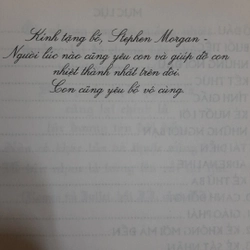 Kính tặng bố, Stephen Morgan -
Người lúc nào cũng yêu con và giúp đỡ con
nhiệt thành nhất trên đời.
Con cũng yêu bố vô cùng.